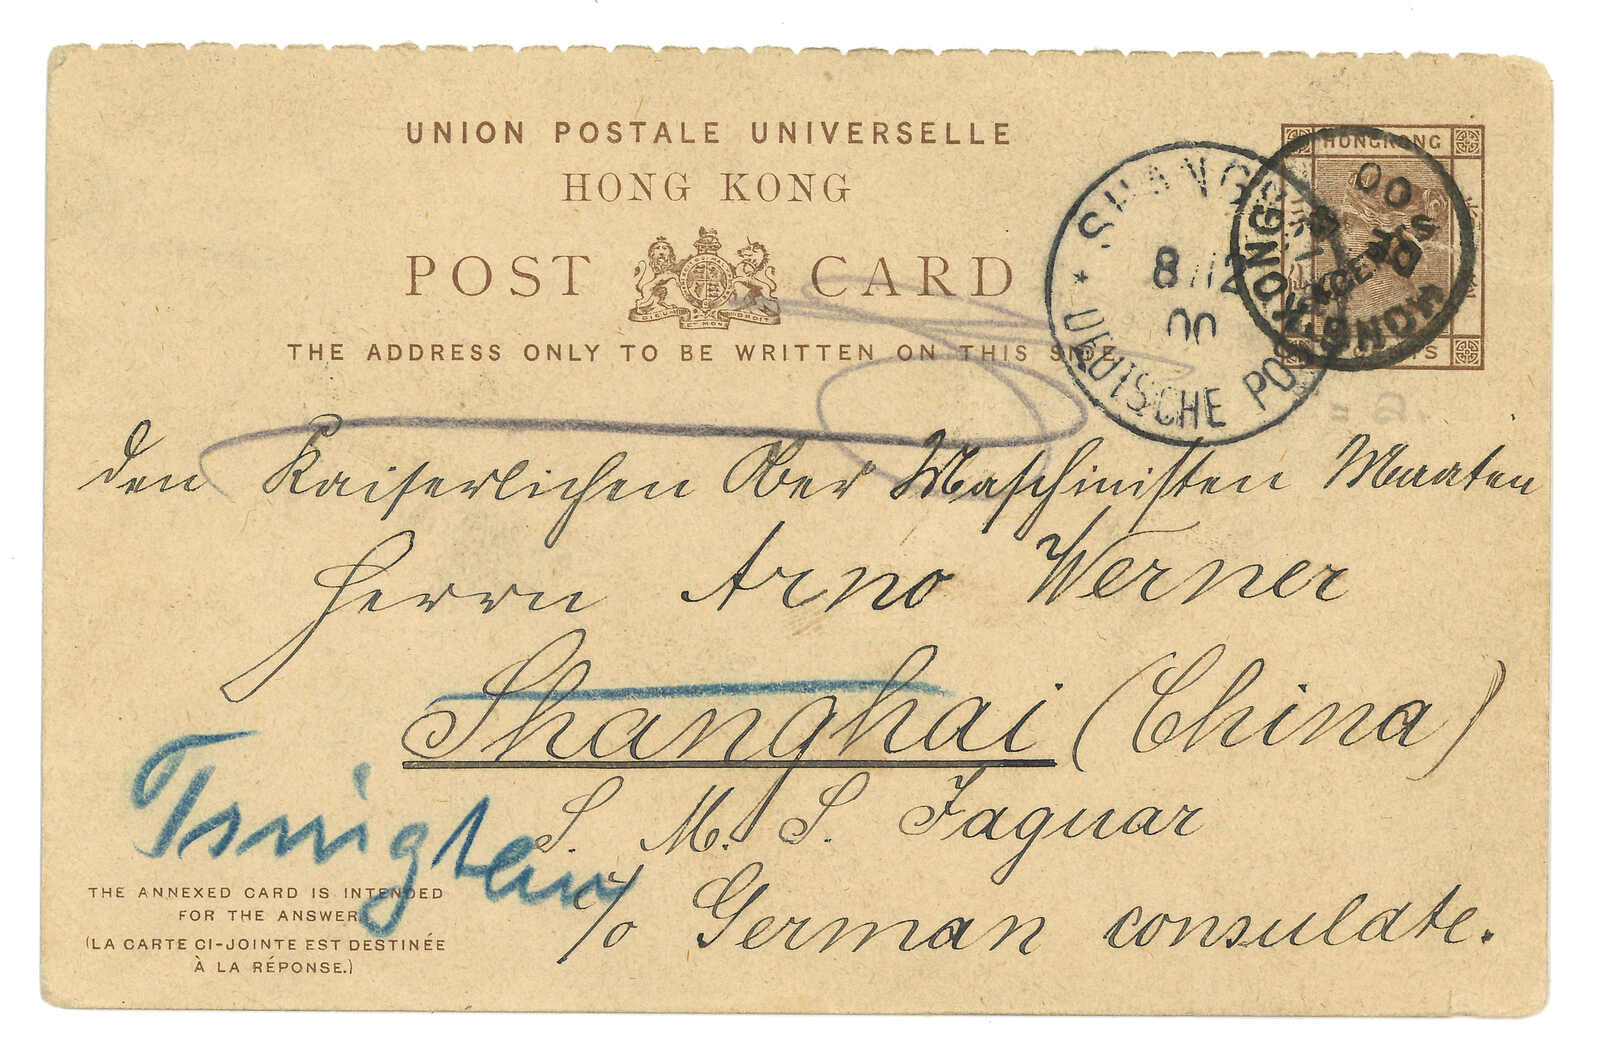 UNION POSTALE UNIVERSELLE
HONG KONG
POST CARD
DIEU ET MON DROIT
THE ADDRESS ONLY TO BE WRITTEN ON THIS SIDE
HONGKONG
SHANG
8/12
00
* DEUTSCHE POST
HONG KONG
00
den Kaiserlichen Ober Maschinisten Maaten
Herrn Arno Werner
Shanghai (China)
S. M. S. Jaguar
Tsingtau
c/o German consulate.
THE ANNEXED CARD IS INTENDED
FOR THE ANSWER.
(LA CARTE CI-JOINTE EST DESTINÉE
À LA RÉPONSE.)